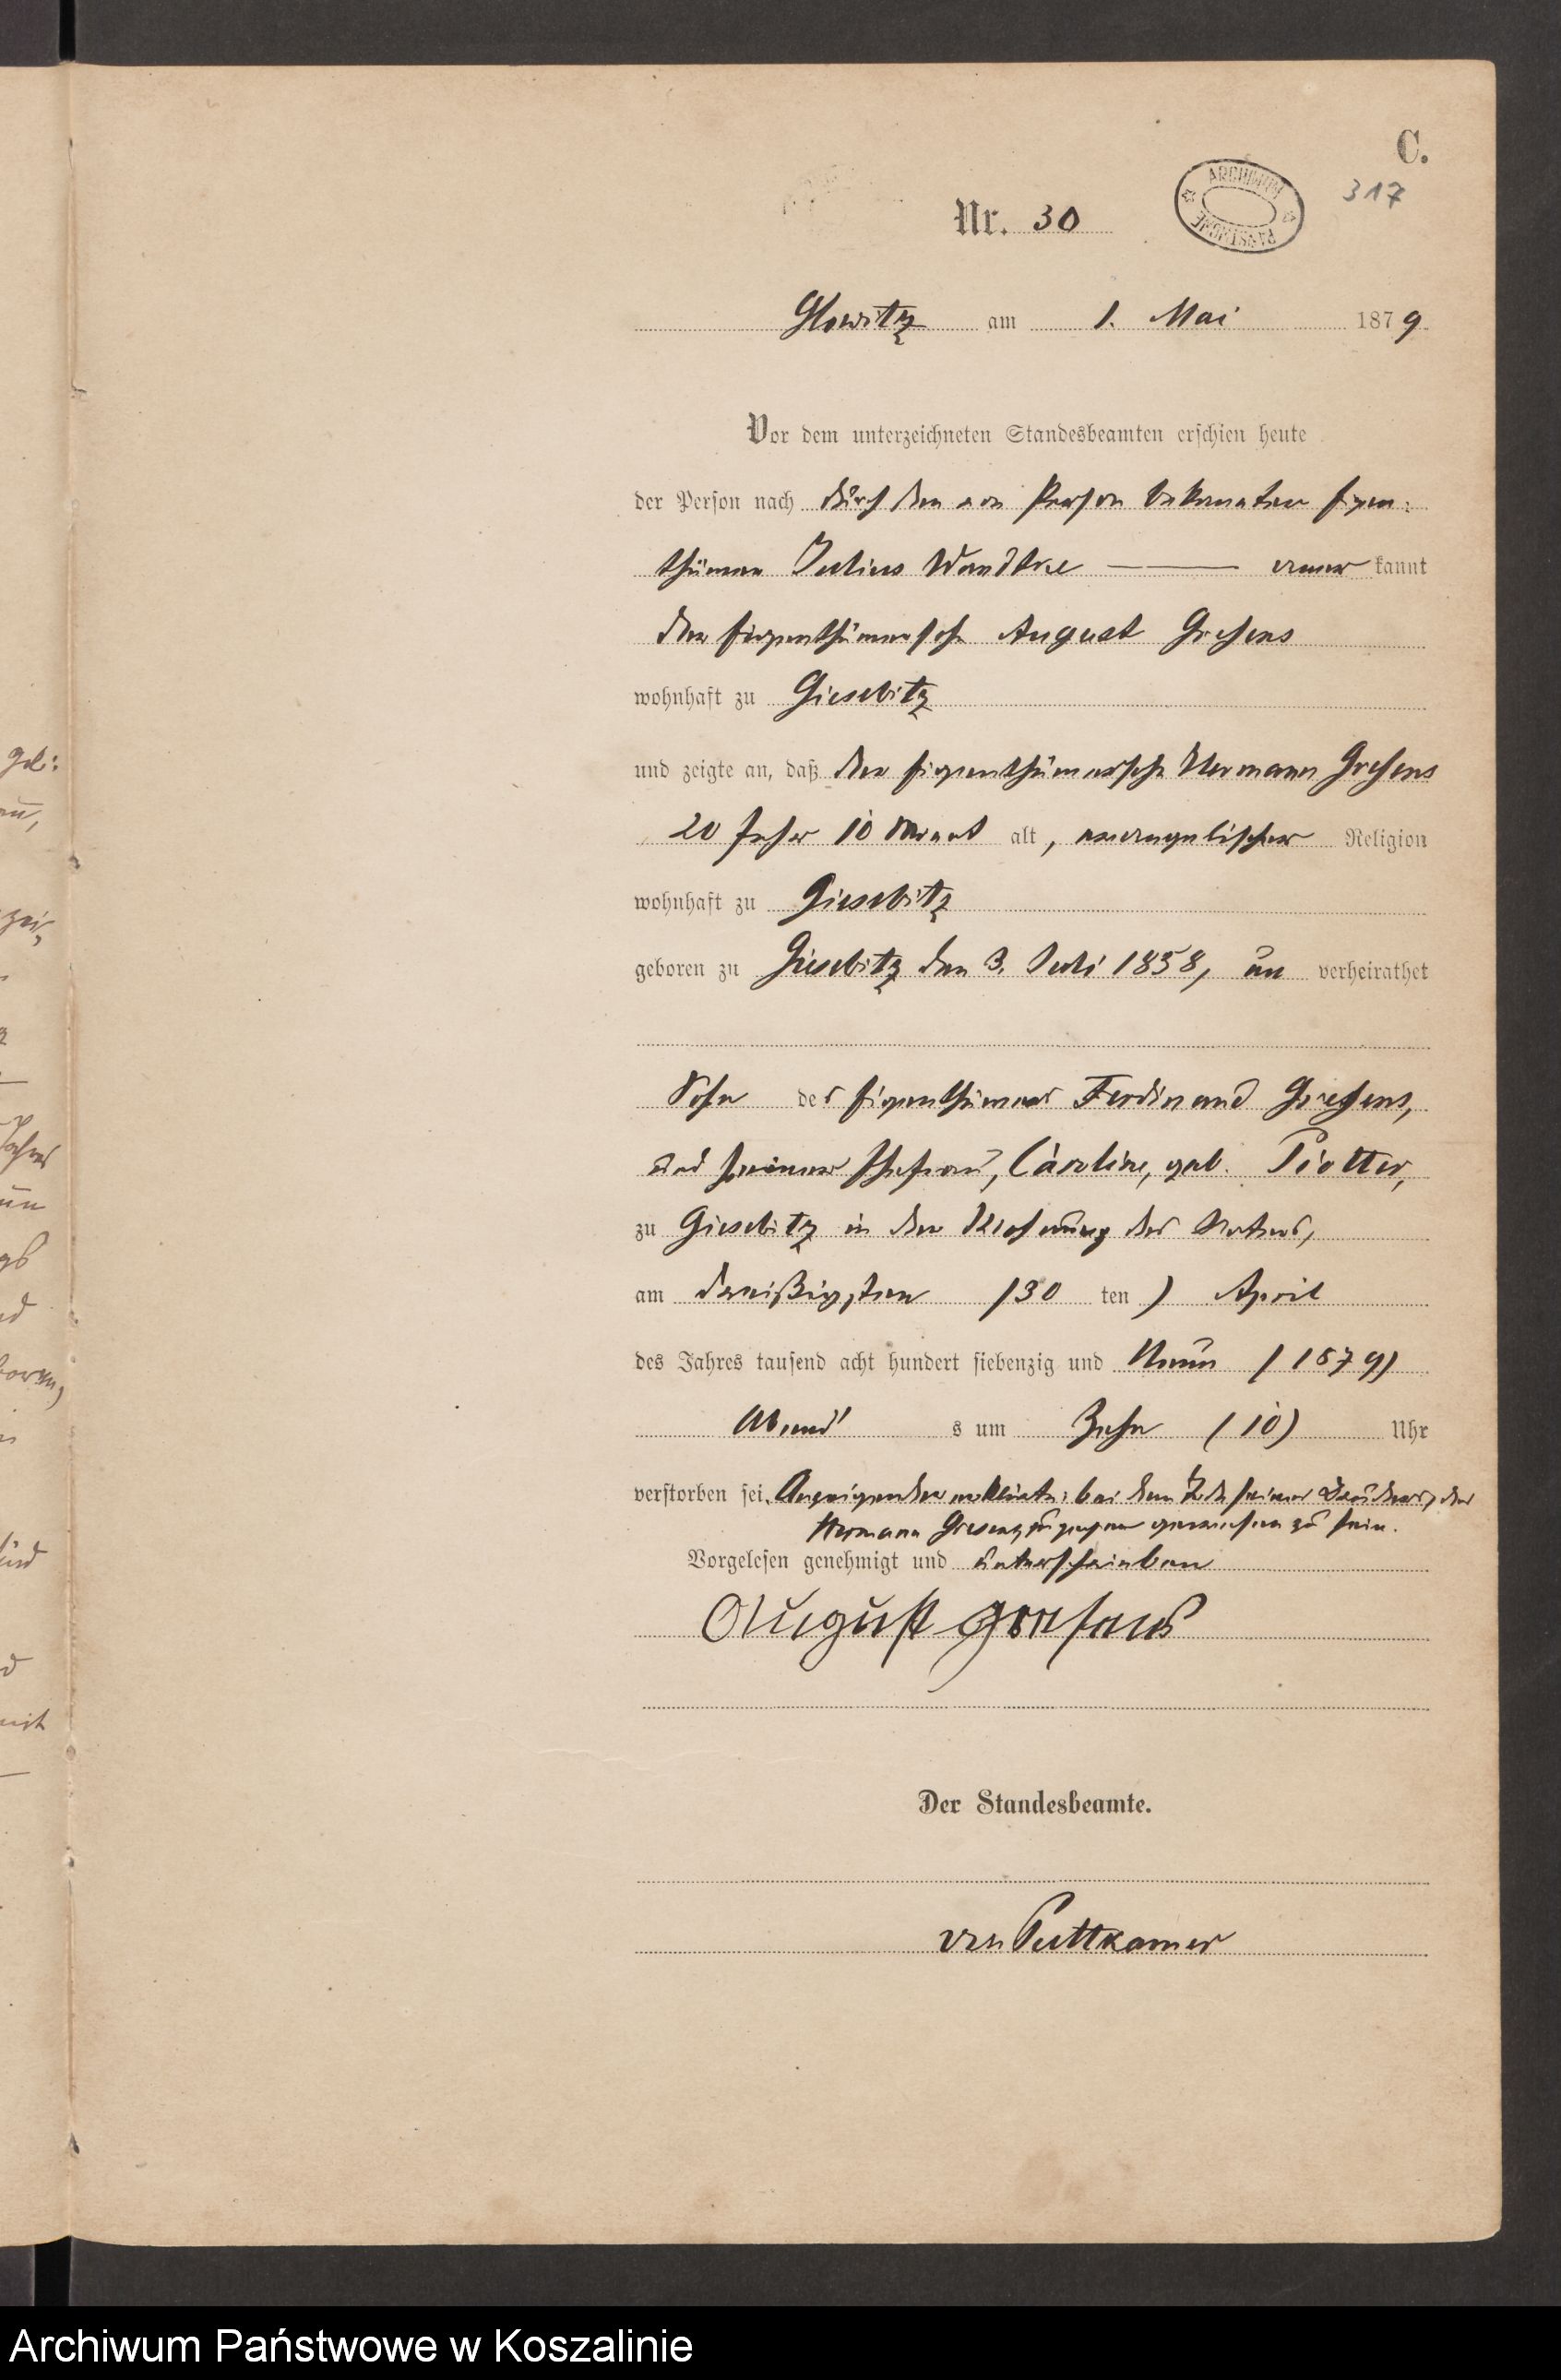 C.
317
ARCHIWUM PAŃSTWOWE
Nr. 30
Glowitz am 1. Mai 1879.
Vor dem unterzeichneten Standesbeamten erschien heute
der Person nach durch den von Person bekannten Eigen:
thümer Julius Wandtke — aner kannt
der Eigenthümersohn August Gresens
wohnhaft zu Giesebitz
und zeigte an, daß der Eigenthümersohn Hermann Gresens
20 Jahr 10 Monat alt, evangelischer Religion
wohnhaft zu Giesebitz
geboren zu Giesebitz den 3. Juli 1858, un verheirathet
Sohn des Eigenthümers Ferdinand Gresens,
und seiner Ehefrau, Caroline, geb. Piotter,
zu Giesebitz in der Wohnung des Vaters,
am dreißigsten (30 ten) April
des Jahres tausend acht hundert siebenzig und Neun (1879)
Abend s um Zehn (10) Uhr
verstorben sei, Anzeigender erklärte: bei dem Tode seines Bruders, des
Hermann Gresens zugegen gewesen zu sein.
Vorgelesen genehmigt und unterschrieben
August Gresens
Der Standesbeamte.
von Puttkamer
gel:
zei,
Jahres
und
mit
Archiwum Państwowe w Koszalinie